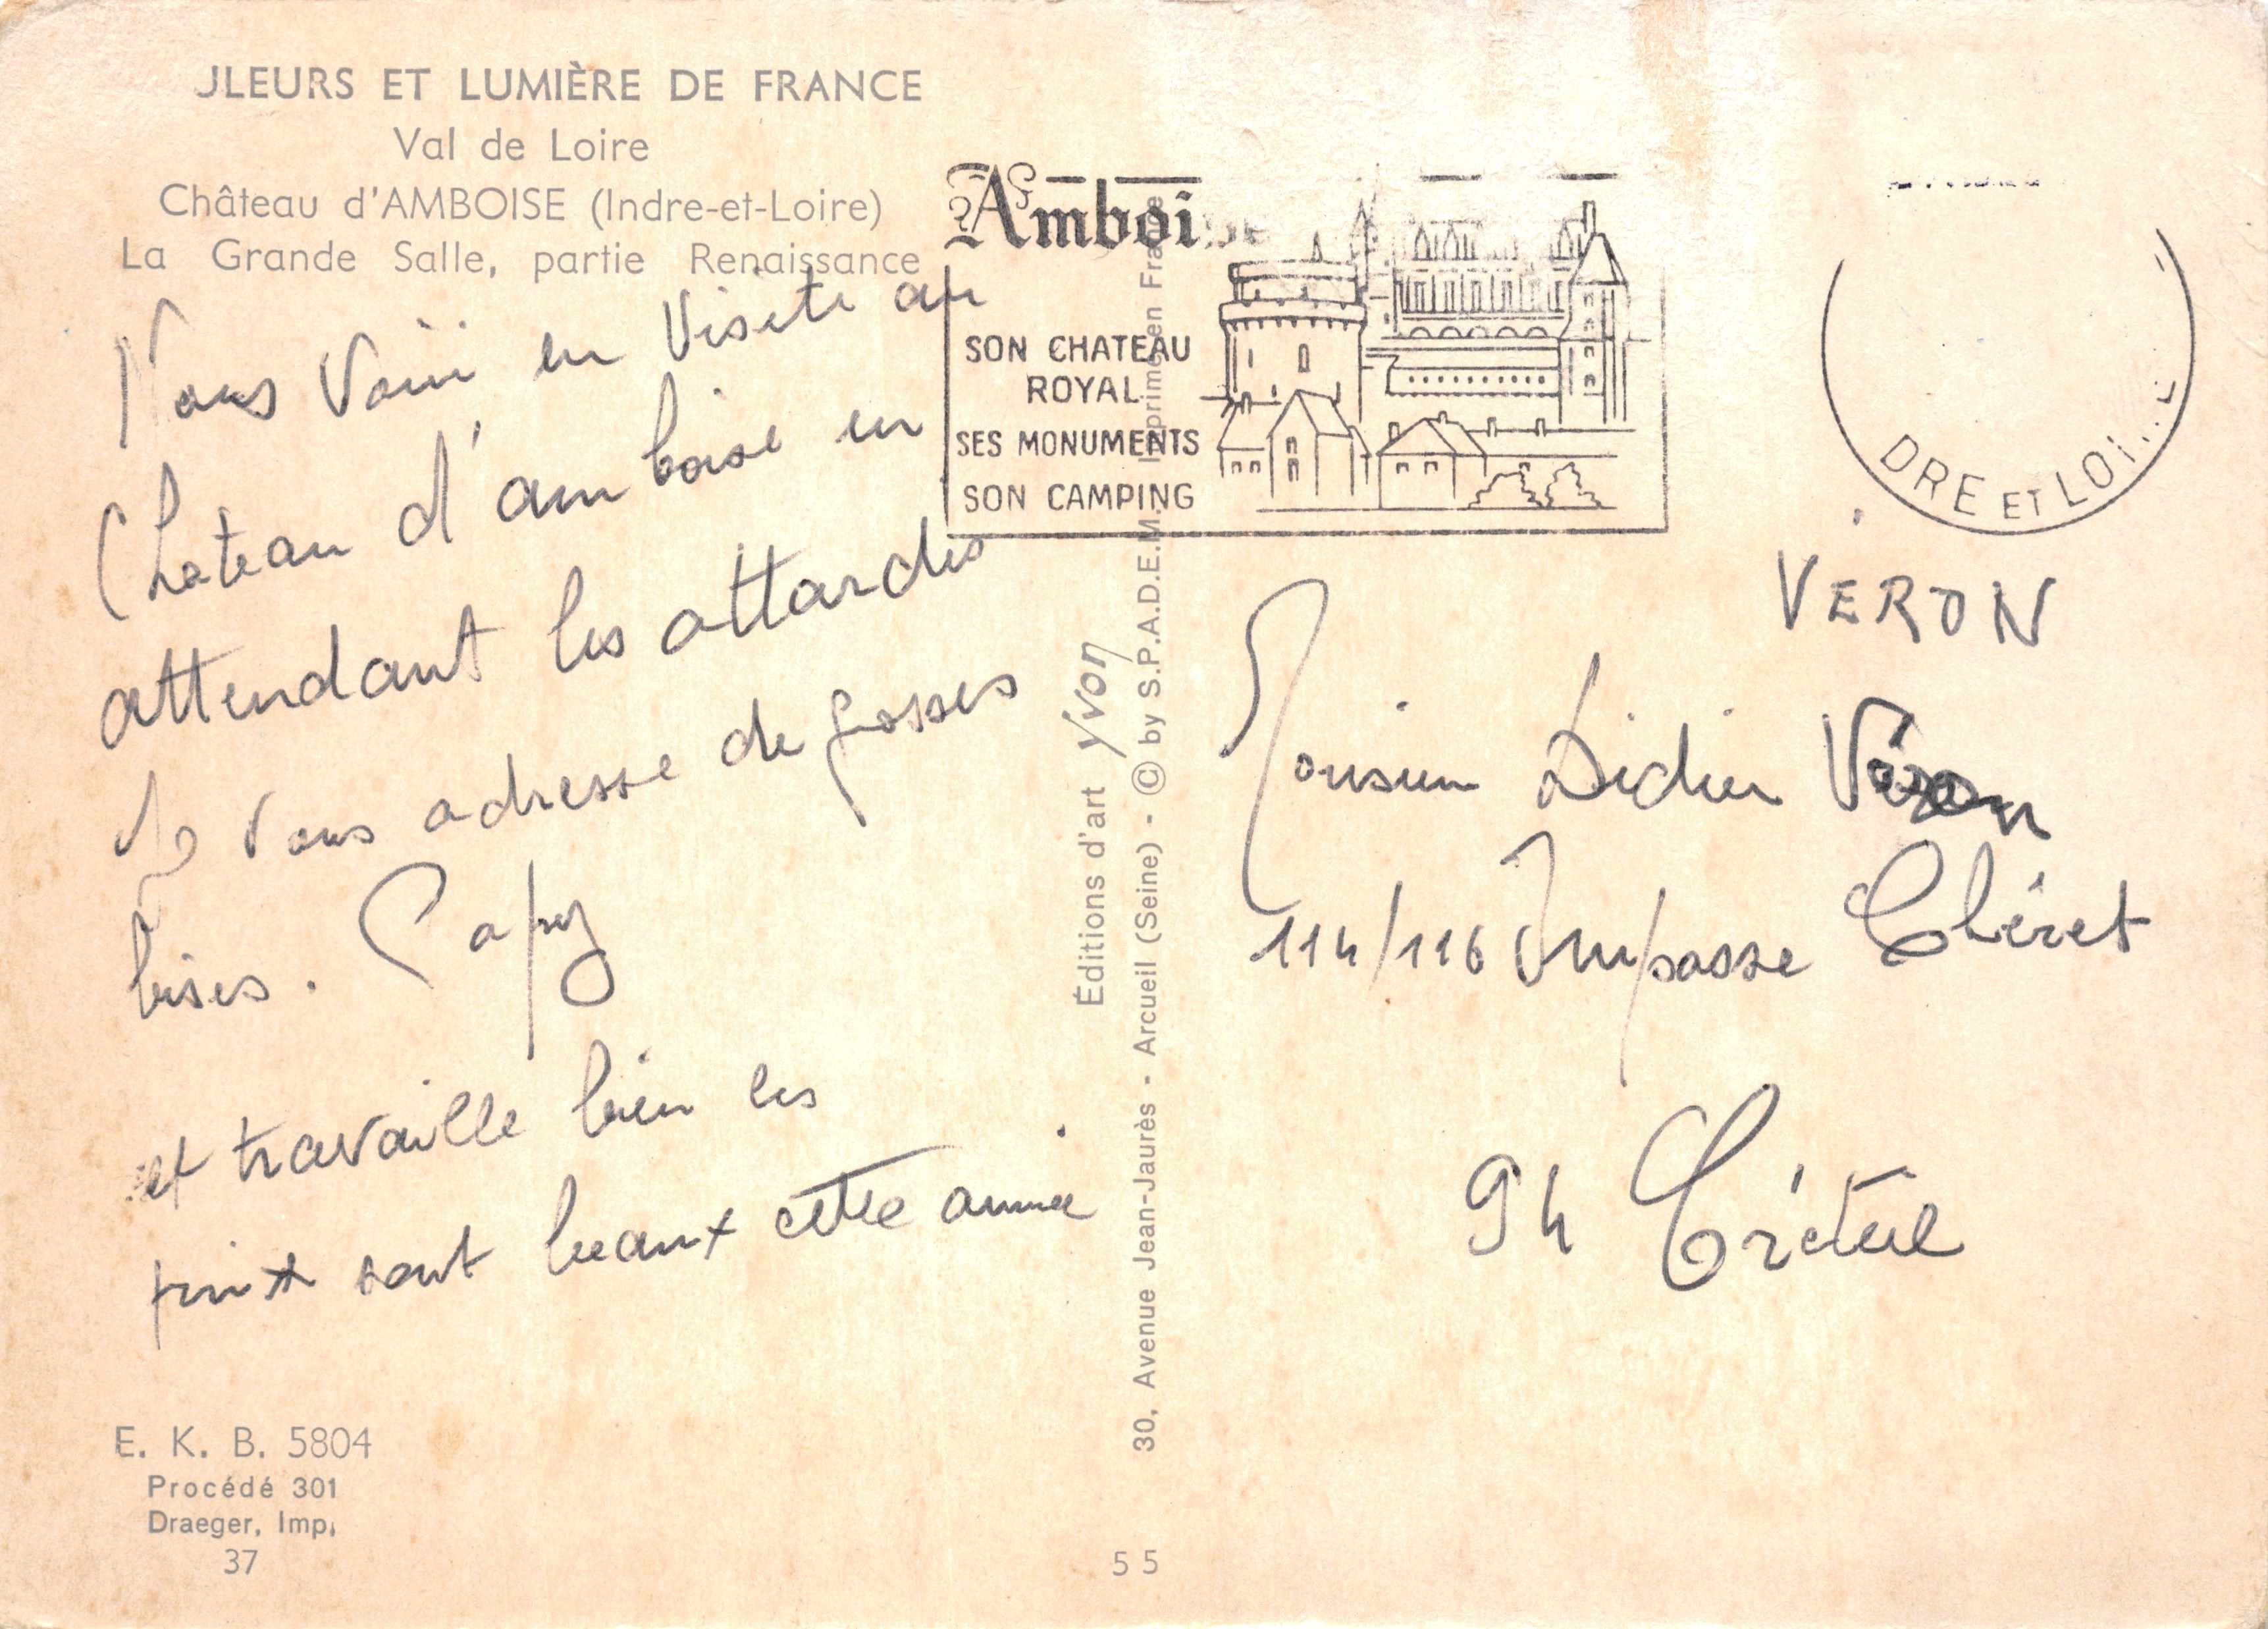 JLEURS ET LUMIÈRE DE FRANCE
Val de Loire
Château d'AMBOISE (Indre-et-Loire)
La Grande Salle, partie Renaissance
Nous Voici en Visite au
Chateau d'amboise en
attendant les attardés
Je vous adresse de grosses
bises. Papy
et travaille bien les
sont beaux cette année
E. K. B. 5804
Procédé 301
Draeger, Imp.
37
Éditions d'art yvon
30, Avenue Jean-Jaurès - Arcueil (Seine) - © by S.P.A.D.E.M. Imprimé en France
55
Amboise
SON CHATEAU
ROYAL
SES MONUMENTS
SON CAMPING
DRE ET LOI
VERON
Monsieur Didier Véron
114/116 Impasse Cléret
94 Créteil